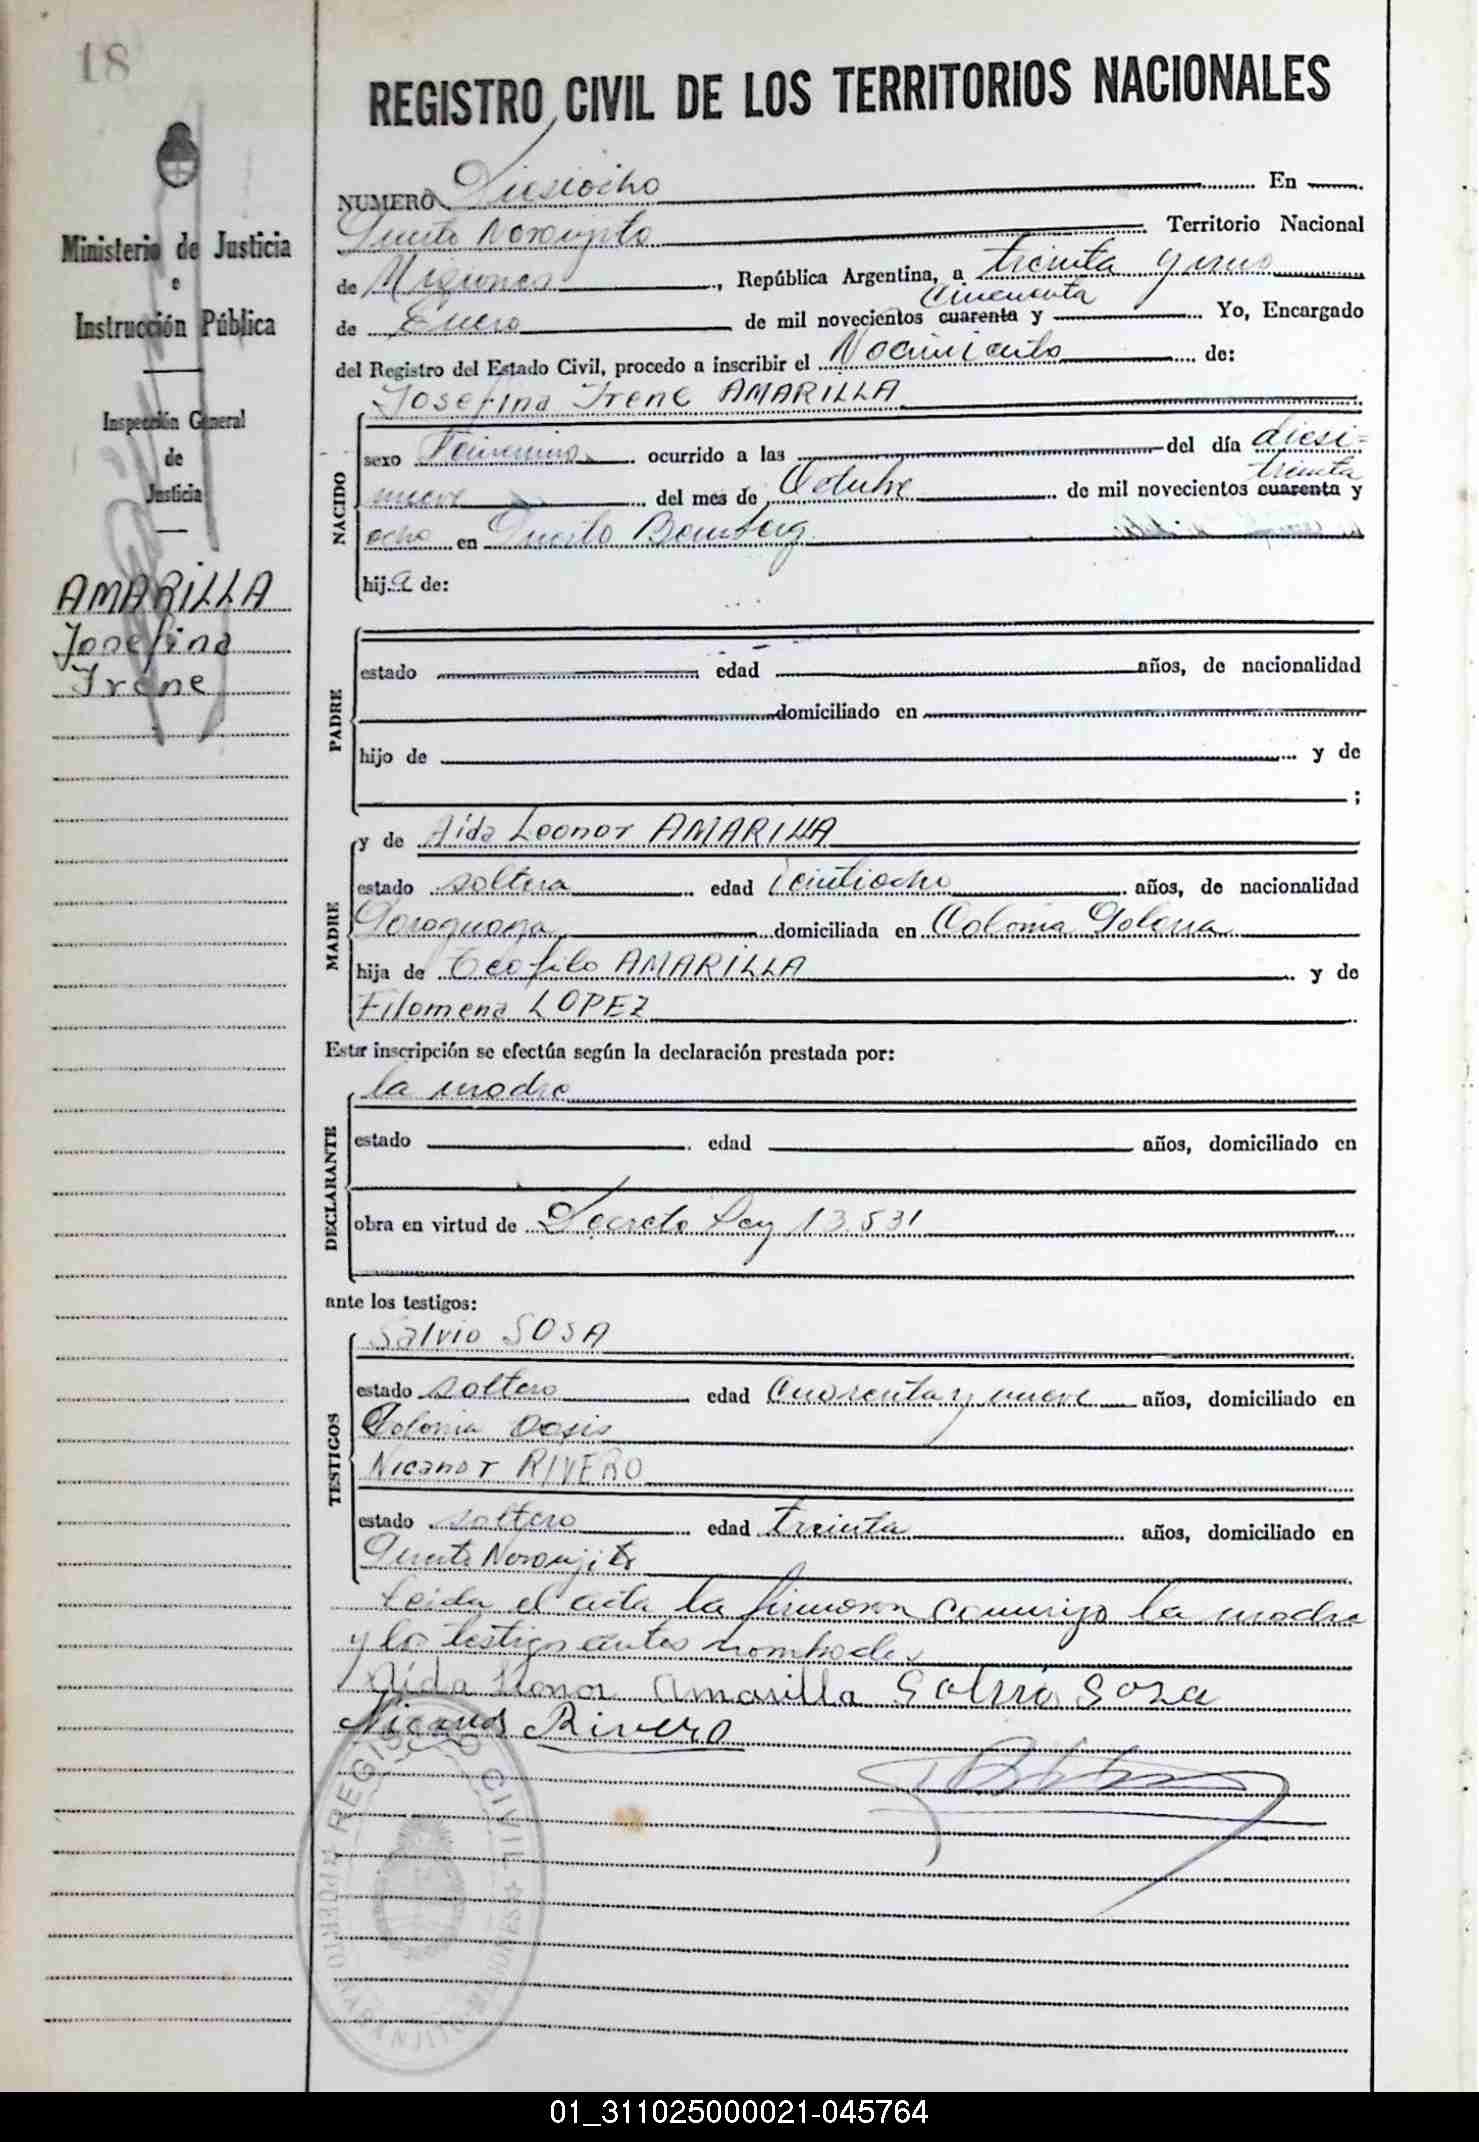 18
REGISTRO CIVIL DE LOS TERRITORIOS NACIONALES
Ministerio de Justicia
e
Instrucción Pública
Inspección General
de
Justicia
AMARILLA
Josefina
Irene
NUMERO Diesiocho En
Puerto Naranjito Territorio Nacional
de Misiones, República Argentina, a treinta y uno
cincuenta
de Enero de mil novecientos cuarenta y Yo, Encargado
del Registro del Estado Civil, procedo a inscribir el Nacimiento de:
Josefina Irene AMARILLA
NACIDO
sexo Femenino ocurrido a las del día diesi=
treinta
nueve del mes de Octubre de mil novecientos cuarenta y
ocho en Puerto Bemberg
hija de:
PADRE
estado edad años, de nacionalidad
domiciliado en
hijo de y de
;
MADRE
y de Aída Leonor AMARILLA
estado soltera edad veintiocho años, de nacionalidad
Paraguaya domiciliada en Colonia Polana
hija de Teofilo AMARILLA y de
Filomena LOPEZ
Esta inscripción se efectúa según la declaración prestada por:
DECLARANTE
la madre
estado edad años, domiciliado en
obra en virtud de Decreto Ley 13.531
ante los testigos:
TESTIGOS
Salvio SOSA
estado soltero edad cuarenta y nueve años, domiciliado en
Colonia Oasis
Nicanor RIVERO
estado soltero edad treinta años, domiciliado en
Puerto Naranjito
Leida el acta la firmaron conmigo la madre
y los testigos antes nombrados
Aida Leonor Amarilla Salvio Sosa
Nicanor Rivero
REGISTRO CIVIL
01_311025000021-045764